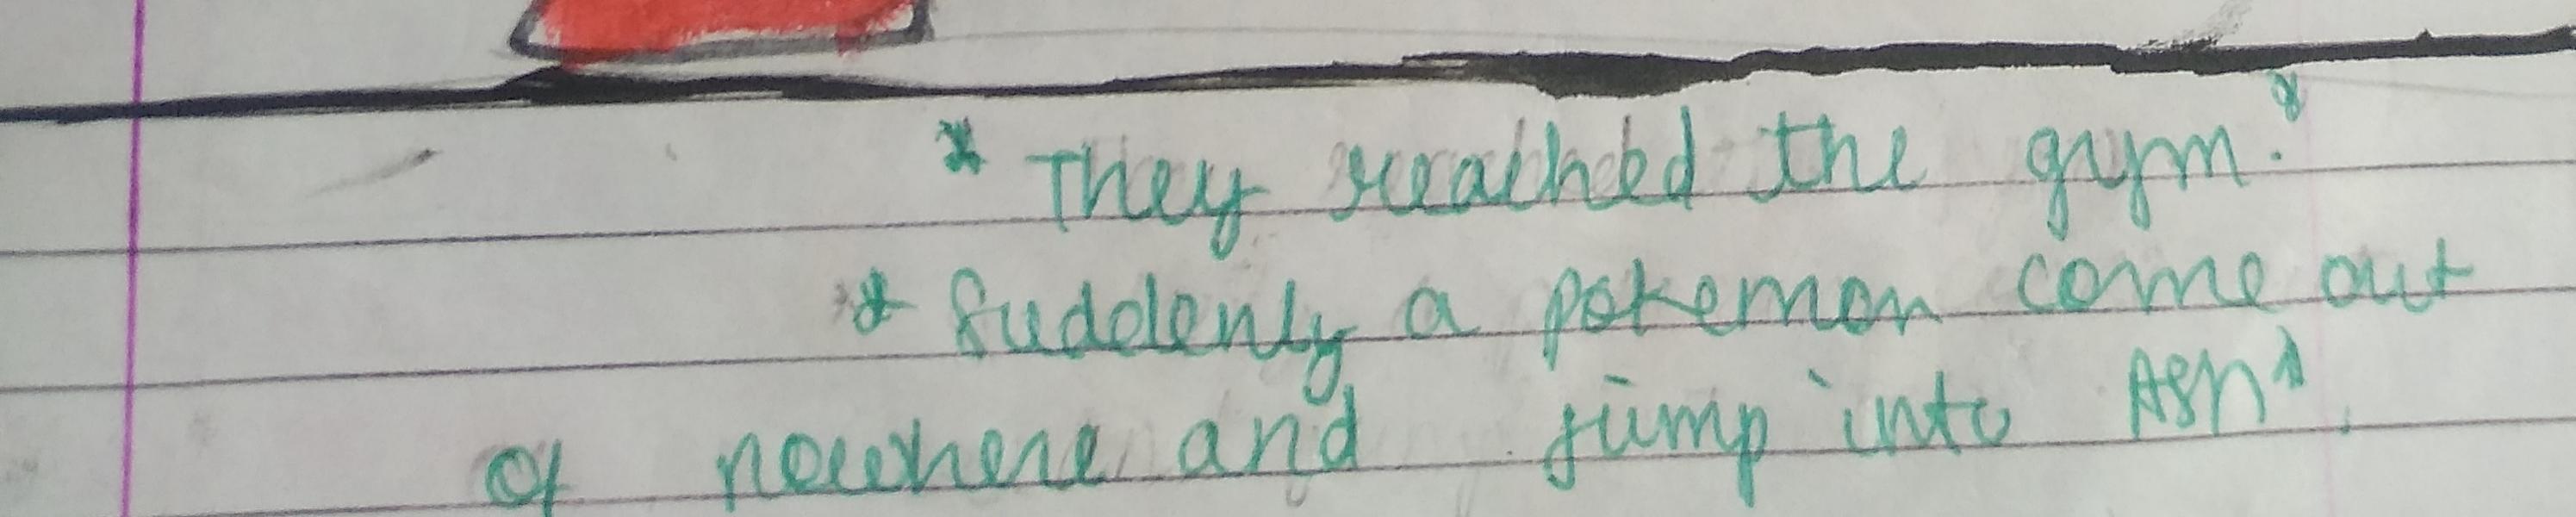 * They reached the gym. *
* Suddenly a pokemon come out
of nowhere and jump into Ash